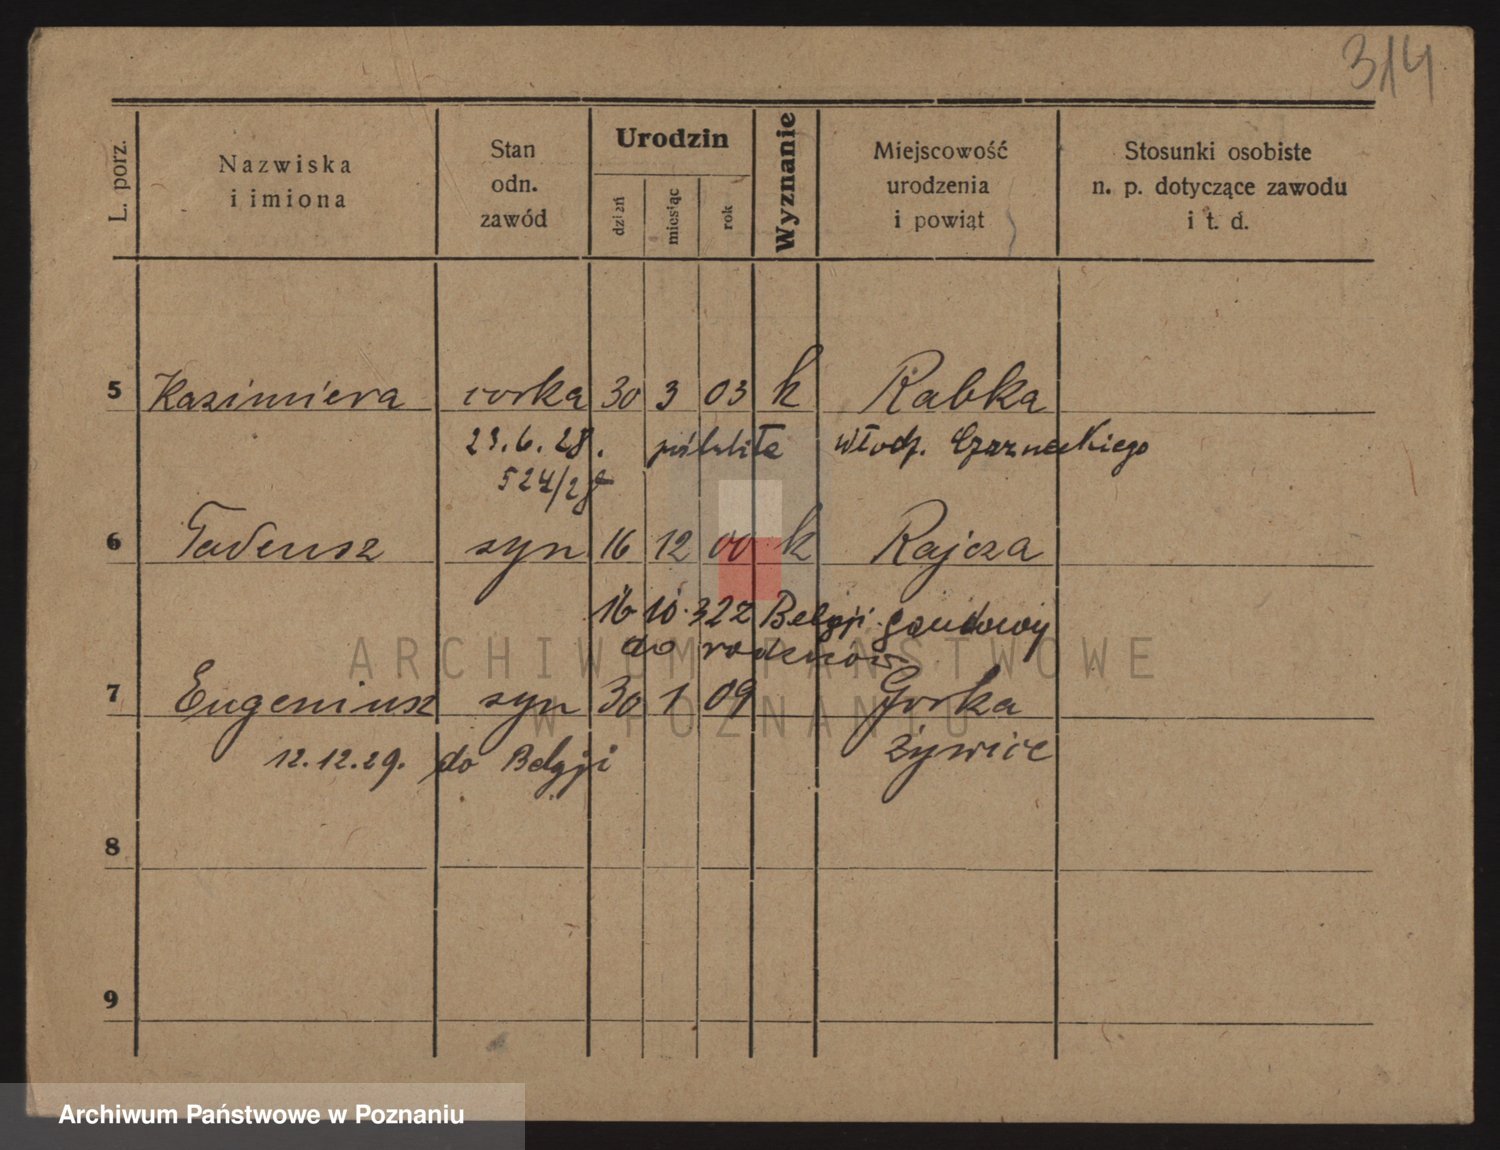 314
L. porz.
Nazwiska i imiona
Stan odn. zawód
Urodzin
dzień
miesiąc
rok
Wyznanie
Miejscowość urodzenia i powiat
Stosunki osobiste n. p. dotyczące zawodu i t. d.
5 Kazimiera corka 30 3 03 k Rabka
23.6.28. poślubiła Włodz. Czarneckiego
524/28
6 Tadeusz syn 16 12 00 k Rajcza
16 10. 32 z Belgji
do
ARCHIWUM PAŃSTWOWE
7 Eugeniusz syn 30 1 09 Gorka
W POZNANIU
12.12.29. do Belgji Żywiec
8
9
Archiwum Państwowe w Poznaniu